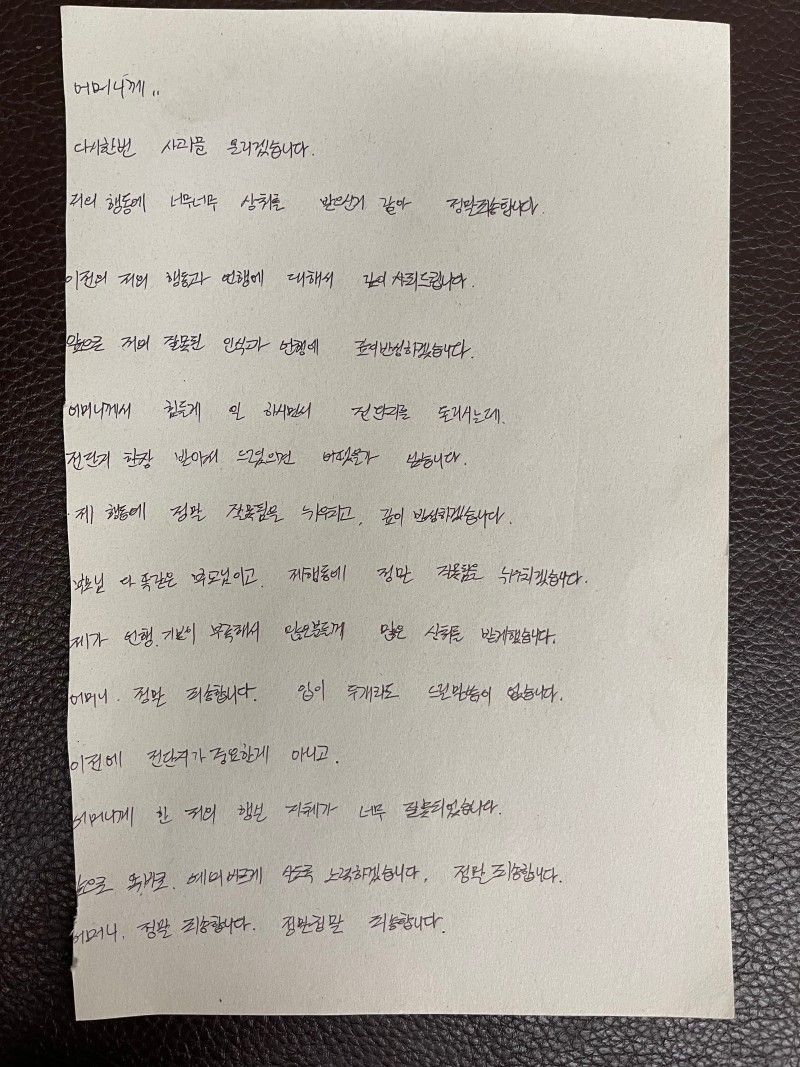 어머니께..
다시한번 사과를 올리겠습니다.
저의 행동에 너무너무 상처를 받으신거 같아 정말죄송합니다.
이전의 저의 행동과 언행에 대해서 깊이 사죄드립니다.
앞으로 저의 잘못된 인식과 언행에 깊이반성하겠습니다.
어머니께서 힘들게 일 하시면서 전단지를 돌리시는데.
전단지 한장 받아서 드렸으면 어땠을까 싶습니다.
제 행동에 정말 잘못됨을 뉘우치고, 깊이 반성하겠습니다.
부모님 다 똑같은 부모님이고. 제행동에 정말 잘못함을 뉘우치겠습니다.
제가 언행. 기본이 부족해서 많은분들께 많은 상처를 받게했습니다.
어머니. 정말 죄송합니다. 입이 두개라도 드릴말씀이 없습니다.
이전에 전단지가 중요한게 아니고.
어머니께 한 저의 행실 자체가 너무 잘못되었습니다.
앞으로 똑바로. 예의바르게 살도록 노력하겠습니다. 정말 죄송합니다.
어머니. 정말 죄송합니다. 정말정말 죄송합니다.